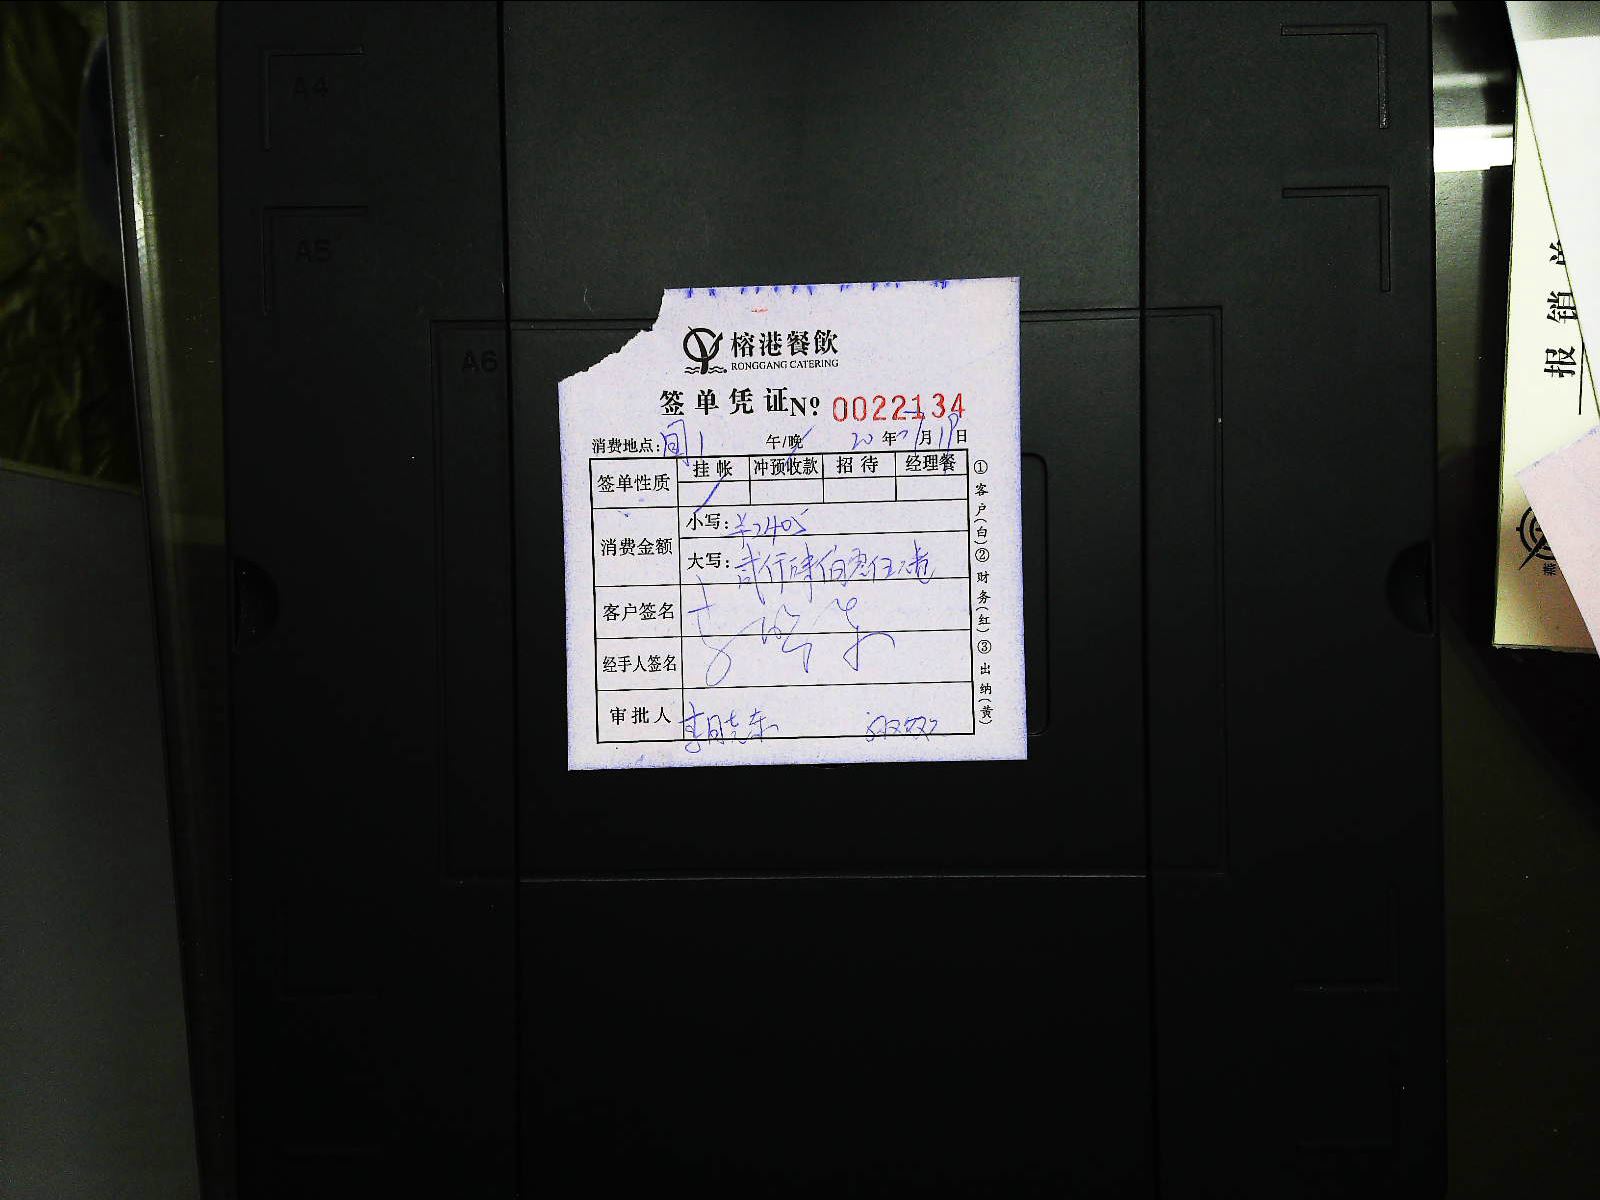 A4
A5
A6
榕港餐飲
RONGGANG CATERING
签单凭证 № 0022134
消费地点: 午/晚 20 年 月 日
签单性质 挂帐 冲预收款 招待 经理餐
消费金额
小写: ¥2405
大写: 贰仟肆佰零伍元
客户签名
经手人签名
审批人
①客户(白)②财务(红)③出纳(黄)
报销